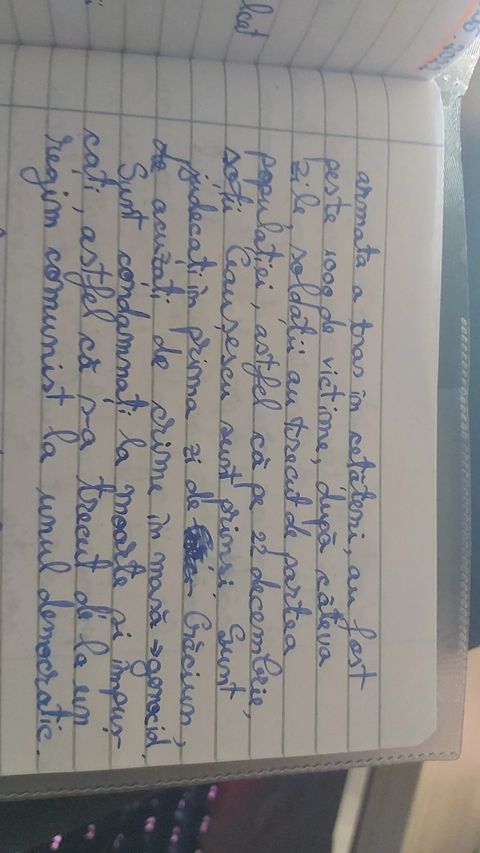 armata a tras în cetățeni, au fost
peste 1000 de victime, după câteva
zile soldații au trecut de partea
populației, astfel că pe 22 decembrie,
soții Ceaușescu sunt prinși. Sunt
judecați în prima zi de Crăciun,
de acuzați de crime în masă → genocid.
Sunt condamnați la moarte și împuș-
cați, astfel că s-a trecut de la un
regim comunist la unul democratic.